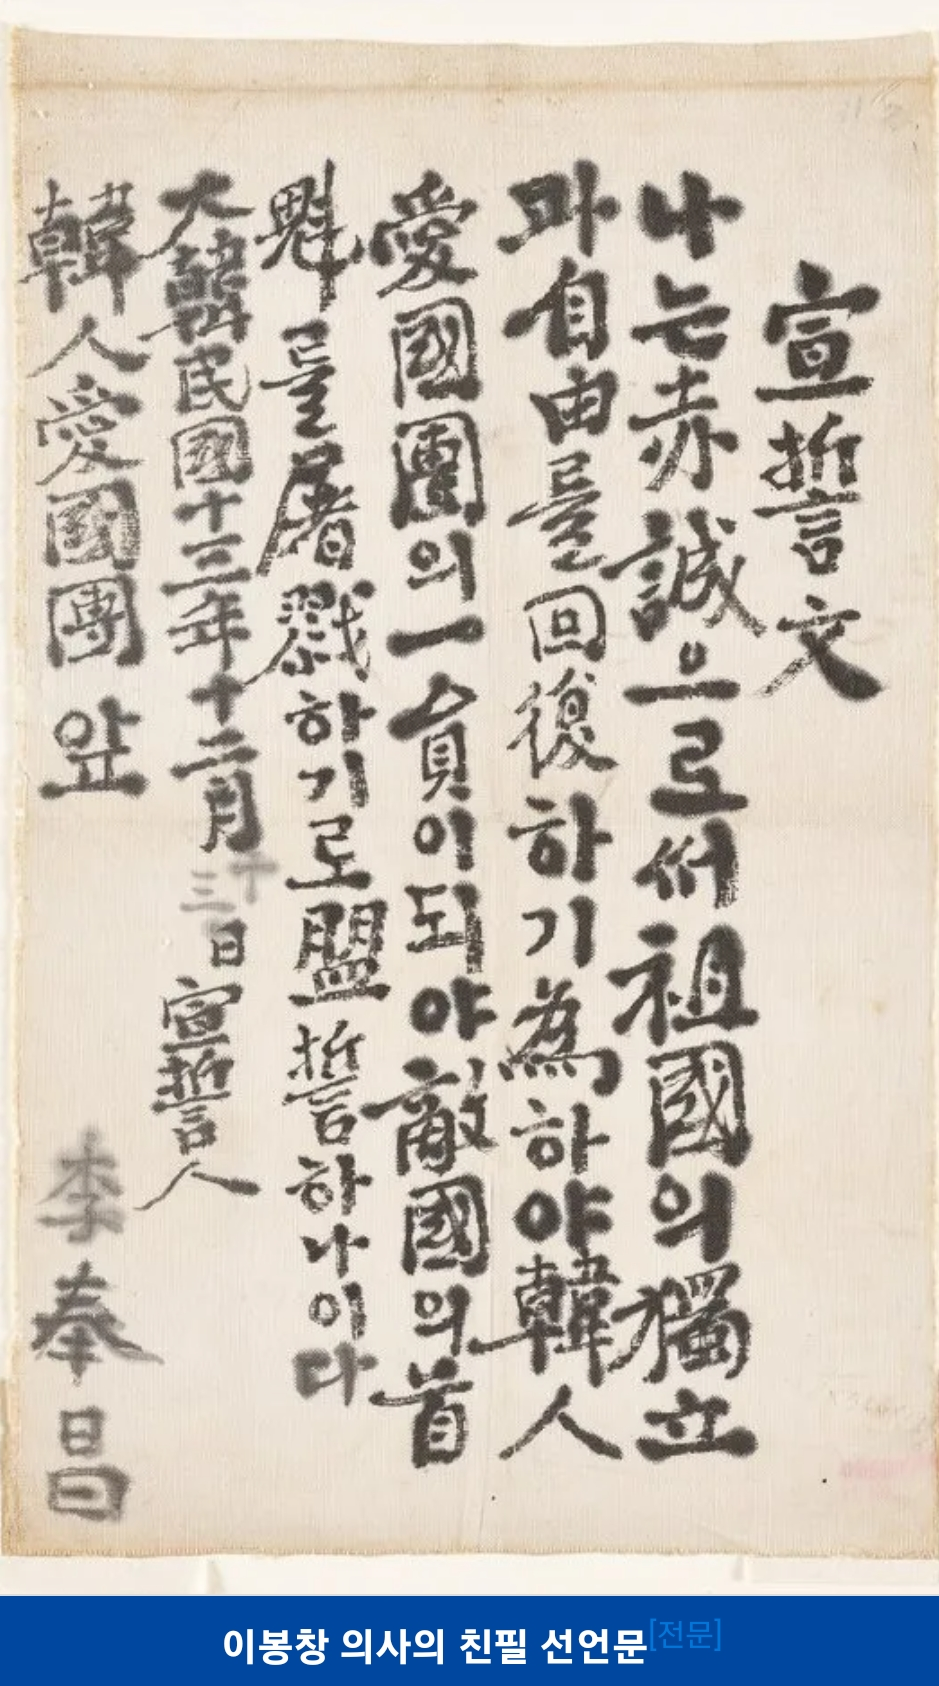 宣誓文
나는赤誠으로써祖國의獨立
과自由를回復하기爲하야韓人
愛國團의一員이되야敵國의首
魁를屠戮하기로盟誓하나이다
大韓民國十三年十二月十三日宣誓人
韓人愛國團앞 李奉昌
이봉창 의사의 친필 선언문[전문]